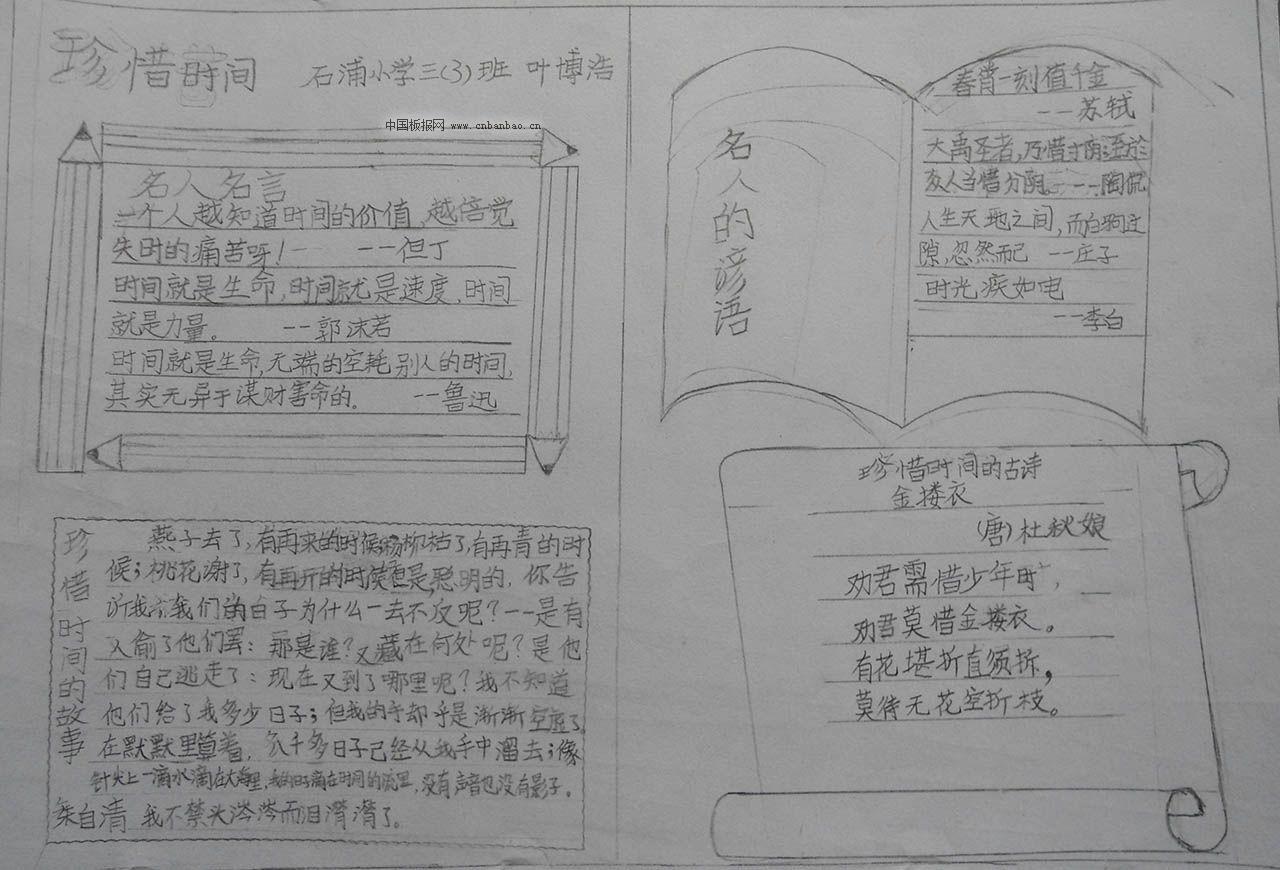 珍惜时间 石浦小学三(3)班 叶博浩
中国板报网 www.cnbanbao.cn
名人名言
一个人越知道时间的价值,越倍觉
失时的痛苦呀! --但丁
时间就是生命,时间就是速度,时间
就是力量。 --郭沫若
时间就是生命,无端的空耗别人的时间,
其实无异于谋财害命的。 --鲁迅
珍惜时间的故事
燕子去了,有再来的时候;杨柳枯了,有再青的时
候;桃花谢了,有再开的时候。但是,聪明的,你告
诉我,我们的日子为什么一去不反呢?--是有
人偷了他们罢:那是谁?又藏在何处呢?是他
们自己逃走了:现在又到了哪里呢?我不知道
他们给了我多少日子;但我的手却乎是渐渐空虚了。
在默默里算着,八千多日子已经从我手中溜去;像
针尖上一滴水滴在大海里,我的日子滴在时间的流里,没有声音也没有影子。
朱自清 我不禁头涔涔而泪潸潸了。
名人的谚语
春宵一刻值千金
--苏轼
大禹圣者,乃惜寸阴;至於
众人当惜分阴。--陶侃
人生天地之间,而白驹过
隙,忽然而已 --庄子
时光疾如电
--李白
珍惜时间的古诗
金搂衣
(唐)杜秋娘
劝君需惜少年时,
劝君莫惜金搂衣。
有花堪折直须折,
莫待无花空折枝。